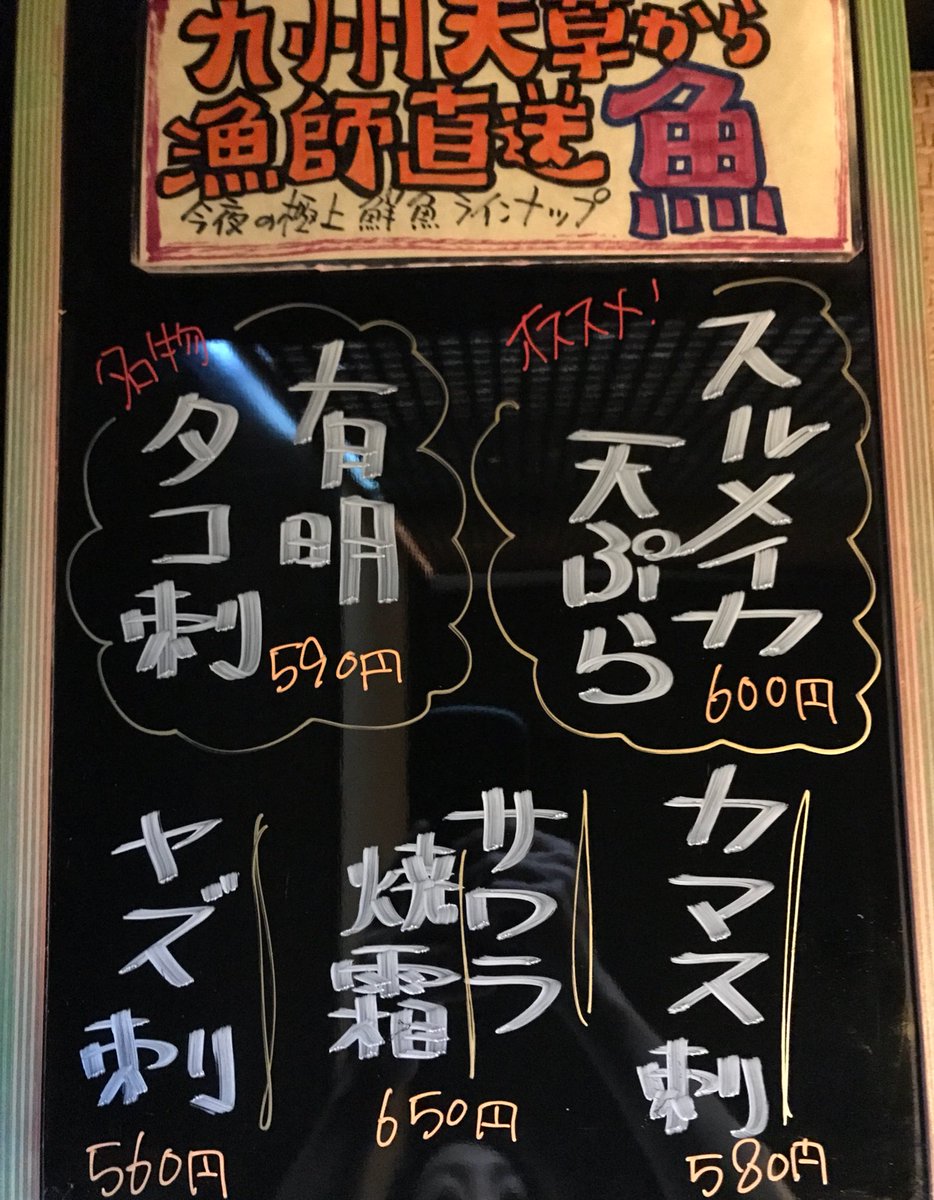 九州天草から
漁師直送 魚
今夜の極上鮮魚ラインナップ
オススメ!
スルメイカ
天ぷら
600円
名物
有明
タコ刺
590円
カマス刺
580円
サワラ
焼霜
650円
ヤズ刺
560円